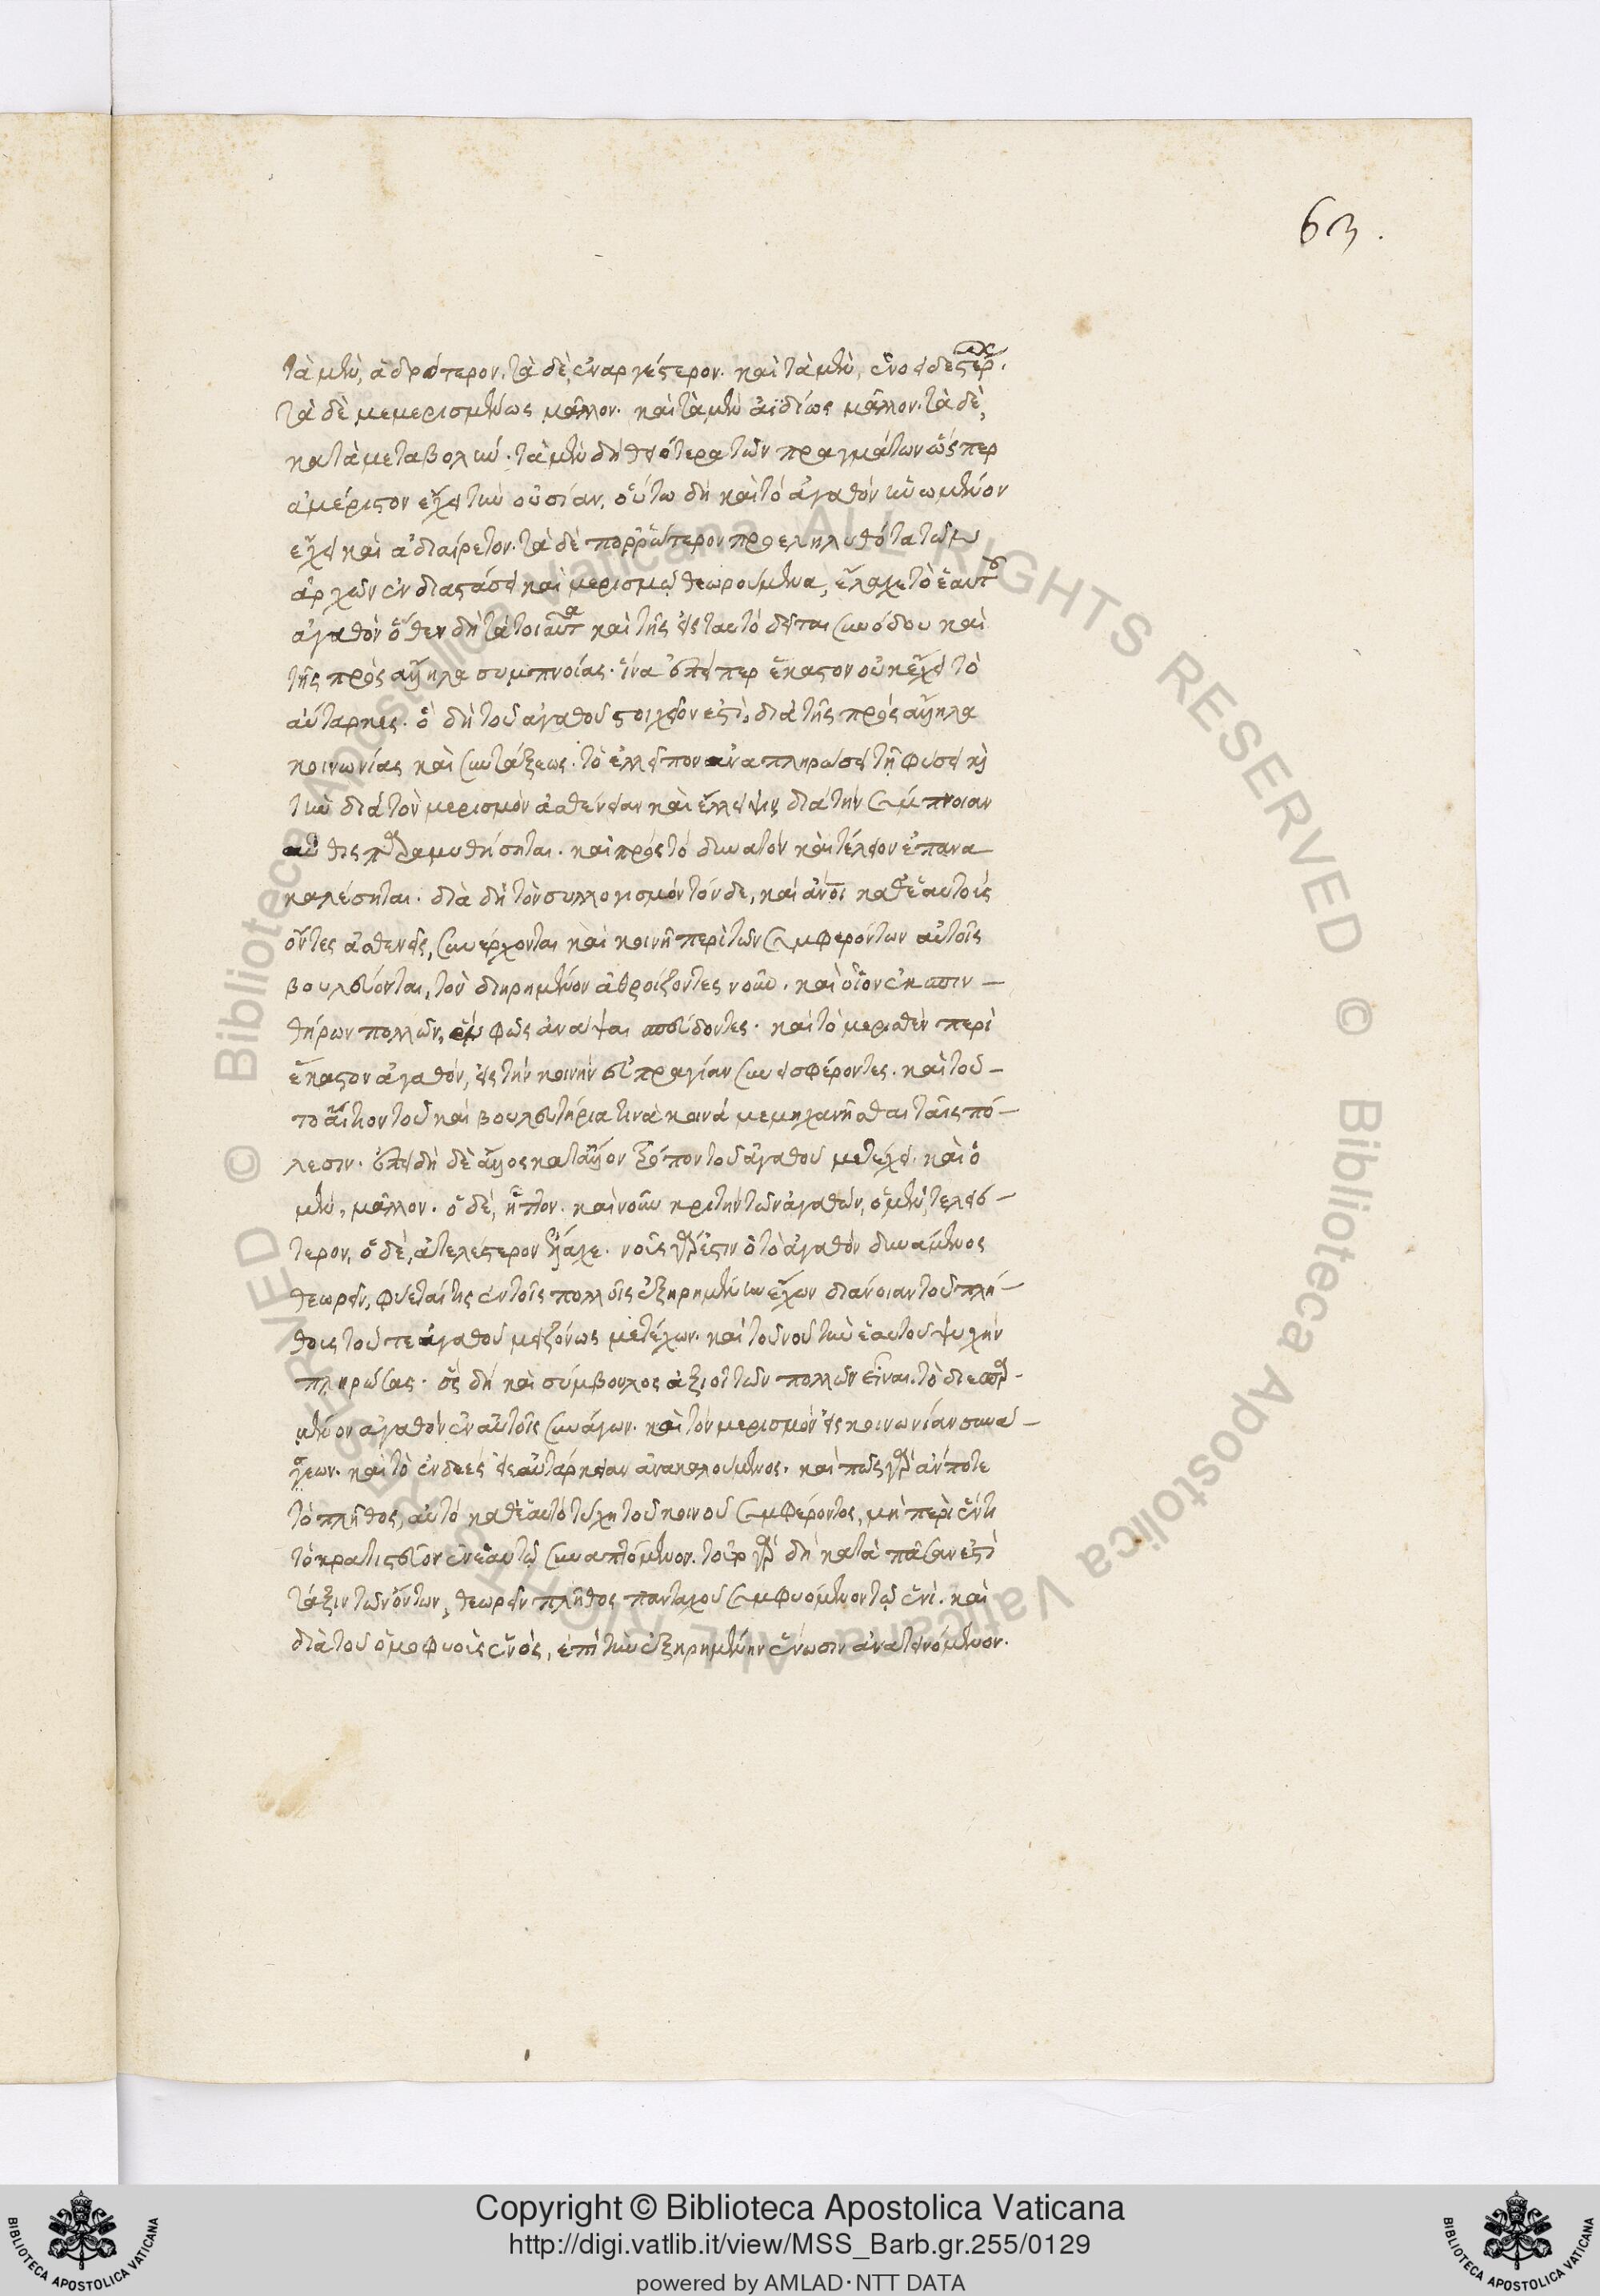 63.
τὰ μὲν, ἁδρότερον. τὰ δὲ, ἐναργέστερον. καὶ τὰ μὲν, ἑνοειδεστέρως.
τὰ δὲ μεμερισμένως μᾶλλον. καὶ τὰ μὲν ἀϊδίως μᾶλλον. τὰ δὲ,
κατὰ μεταβολήν. τὰ μὲν δὴ θειότερα τῶν πραγμάτων ὥσπερ
ἀμέριστον ἔχει τὴν οὐσίαν, οὕτω δὴ καὶ τὸ ἀγαθὸν ἡνωμένον
ἔχει καὶ ἀδιαίρετον. τὰ δὲ πορρώτερον προεληλυθότα τῶν
ἀρχῶν ἐν διαστάσει καὶ μερισμῷ θεωρούμενα, ἔλαχε τὸ ἑαυτοῦ
ἀγαθὸν ὅθεν δὴ τὰ τοιαῦτα καὶ τῆς εἰς ταυτὸ δεῖται συνόδου καὶ
τῆς πρὸς ἄλληλα συμπνοίας. ἵνα ἐπείπερ ἕκαστον οὐκ ἔχει τὸ
αὔταρκες. ὃ δὴ τοῦ ἀγαθοῦ στοιχεῖον ἐστὶ, διὰ τῆς πρὸς ἄλληλα
κοινωνίας καὶ συντάξεως. τὸ ἐλλεῖπον ἀναπληρώσει τῇ φύσει καὶ
τὴν διὰ τὸν μερισμὸν ἀσθένειαν καὶ ἔλλειψιν διὰ τὴν σύμπνοιαν
αὖθις παραμυθήσηται. καὶ πρὸς τὸ δυνατὸν καὶ τέλειον ἐπανα
καλέσηται. διὰ δὴ τὸν συλλογισμὸν τόνδε, καὶ ἄνοι καθ' ἑαυτοὺς
ὄντες ἀσθενεῖς, συνέρχονται καὶ κοινῇ περὶ τῶν συμφερόντων αὐτοῖς
βουλεύονται, τὸν διῃρημένον ἀθροίζοντες νοῦν. καὶ οἷον ἐκ σπιν-
θήρων πολλῶν, ἓν φῶς ἀνάψαι σπεύδοντες. καὶ τὸ μερισθὲν περὶ
ἕκαστον ἀγαθόν, εἰς τὴν κοινὴν εὐπραγίαν συνεισφέροντες. καὶ τοῦ-
το αἴτιον τοῦ καὶ βουλευτήρια τινὰ κοινὰ μεμηχανῆσθαι ταῖς πό-
λεσιν. ἐπειδὴ δὲ ἄλλος κατ' ἄλλον τρόπον τοῦ ἀγαθοῦ μετέχει. καὶ ὁ
μὲν, μᾶλλον. ὁ δὲ, ἧττον. καὶ νοῦν κριτὴν τῶν ἀγαθῶν, ὁ μὲν, τελειό-
τερον, ὁ δὲ, ἀτελέστερον ἔλαχε. νοῦς γάρ ἐστιν ὁ τὸ ἀγαθὸν δυνάμενος
θεωρεῖν, φύεταί τις ἐν τοῖς πολλοῖς ἐξῃρημένην ἔχων διάνοιαν τοῦ πλή-
θους τοῦ τε ἀγαθοῦ μειζόνως μετέχων. καὶ τοῦ νοῦ τὴν ἑαυτοῦ ψυχὴν
πληρώσας. ὃς δὴ καὶ σύμβουλος ἀξιοῖ τῶν πολλῶν εἶναι. τὸ διεσπαρ-
μένον ἀγαθὸν ἐν αὐτοῖς συνάγων. καὶ τὸν μερισμὸν εἰς κοινωνίαν συνα-
γείρων. καὶ τὸ ἐνδεὲς εἰς αὐτάρκειαν ἀνακαλούμενος. καὶ πῶς γὰρ ἄν ποτε
τὸ πλῆθος, αὐτὸ καθ' ἑαυτὸ τύχῃ τοῦ κοινοῦ συμφέροντος, μὴ περὶ ἕν τι
τὸ κρατιστεῦον ἐν ἑαυτῷ συναπτόμενον. τοῦτο γὰρ δὴ κατὰ πᾶσαν ἐστὶ
τάξιν τῶν ὄντων, θεωρεῖν πλῆθος πανταχοῦ συμφυόμενον τῷ ἑνὶ. καὶ
διὰ τοῦ ὁμοφυοῦς ἑνὸς, ἐπὶ τὴν ἐξῃρημένην ἕνωσιν ἀνατεινόμενον.
© Biblioteca Apostolica Vaticana ALL RIGHTS RESERVED © Biblioteca Apostolica Vaticana ALL RIGHTS RESERVED
Copyright © Biblioteca Apostolica Vaticana
http://digi.vatlib.it/view/MSS_Barb.gr.255/0129
powered by AMLAD·NTT DATA
BIBLIOTECA APOSTOLICA VATICANA
BIBLIOTECA APOSTOLICA VATICANA